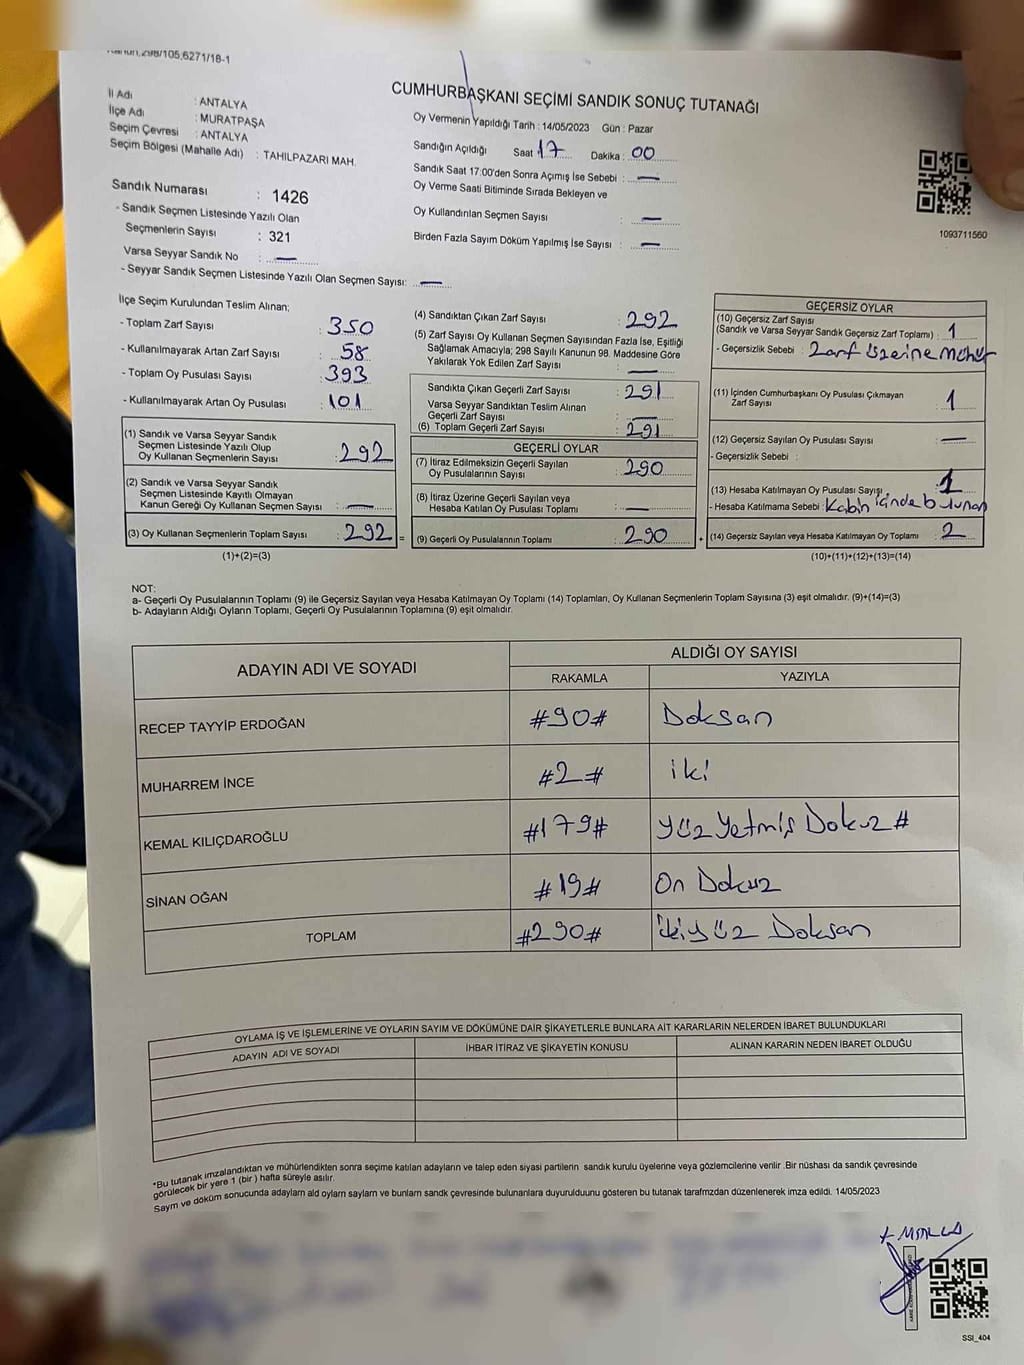 Kanun,298/105,6271/18-1
CUMHURBAŞKANI SEÇİMİ SANDIK SONUÇ TUTANAĞI
İl Adı : ANTALYA
İlçe Adı : MURATPAŞA
Seçim Çevresi : ANTALYA
Seçim Bölgesi (Mahalle Adı) : TAHILPAZARI MAH.
Sandık Numarası : 1426
- Sandık Seçmen Listesinde Yazılı Olan
Seçmenlerin Sayısı : 321
Varsa Seyyar Sandık No : —
- Seyyar Sandık Seçmen Listesinde Yazılı Olan Seçmen Sayısı: —
Oy Vermenin Yapıldığı Tarih : 14/05/2023 Gün : Pazar
Sandığın Açıldığı Saat 17 Dakika : 00
Sandık Saat 17:00'den Sonra Açılmış İse Sebebi : —
Oy Verme Saati Bitiminde Sırada Bekleyen ve
Oy Kullandırılan Seçmen Sayısı : —
Birden Fazla Sayım Döküm Yapılmış İse Sayısı : —
1093711560
İlçe Seçim Kurulundan Teslim Alınan;
- Toplam Zarf Sayısı : 350
- Kullanılmayarak Artan Zarf Sayısı : 58
- Toplam Oy Pusulası Sayısı : 393
- Kullanılmayarak Artan Oy Pusulası : 101
(1) Sandık ve Varsa Seyyar Sandık
Seçmen Listesinde Yazılı Olup
Oy Kullanan Seçmenlerin Sayısı : 292
(2) Sandık ve Varsa Seyyar Sandık
Seçmen Listesinde Kayıtlı Olmayan
Kanun Gereği Oy Kullanan Seçmen Sayısı : —
(3) Oy Kullanan Seçmenlerin Toplam Sayısı : 292 =
(1)+(2)=(3)
(4) Sandıktan Çıkan Zarf Sayısı : 292
(5) Zarf Sayısı Oy Kullanan Seçmen Sayısından Fazla İse, Eşitliği
Sağlamak Amacıyla; 298 Sayılı Kanunun 98. Maddesine Göre
Yakılarak Yok Edilen Zarf Sayısı : —
Sandıkta Çıkan Geçerli Zarf Sayısı : 291
Varsa Seyyar Sandıktan Teslim Alınan
Geçerli Zarf Sayısı : —
(6) Toplam Geçerli Zarf Sayısı : 291
GEÇERLİ OYLAR
(7) İtiraz Edilmeksizin Geçerli Sayılan
Oy Pusulalarının Sayısı : 290
(8) İtiraz Üzerine Geçerli Sayılan veya
Hesaba Katılan Oy Pusulası Toplamı : —
(9) Geçerli Oy Pusulalarının Toplamı : 290 +
GEÇERSİZ OYLAR
(10) Geçersiz Zarf Sayısı
(Sandık ve Varsa Seyyar Sandık Geçersiz Zarf Toplamı) : 1
- Geçersizlik Sebebi : Zarf üzerine mühür
(11) İçinden Cumhurbaşkanı Oy Pusulası Çıkmayan
Zarf Sayısı : 1
(12) Geçersiz Sayılan Oy Pusulası Sayısı : —
- Geçersizlik Sebebi :
(13) Hesaba Katılmayan Oy Pusulası Sayısı : 1
- Hesaba Katılmama Sebebi : Kabin içinde bulunan
(14) Geçersiz Sayılan veya Hesaba Katılmayan Oy Toplamı : 2
(10)+(11)+(12)+(13)=(14)
NOT:
a- Geçerli Oy Pusulalarının Toplamı (9) ile Geçersiz Sayılan veya Hesaba Katılmayan Oy Toplamı (14) Toplamları, Oy Kullanan Seçmenlerin Toplam Sayısına (3) eşit olmalıdır. (9)+(14)=(3)
b- Adayların Aldığı Oyların Toplamı, Geçerli Oy Pusulalarının Toplamına (9) eşit olmalıdır.
ADAYIN ADI VE SOYADI ALDIĞI OY SAYISI
RAKAMLA YAZIYLA
RECEP TAYYİP ERDOĞAN #90# Doksan
MUHARREM İNCE #2# iki
KEMAL KILIÇDAROĞLU #179# Yüz Yetmiş Dokuz #
SİNAN OĞAN #19# On Dokuz
TOPLAM #290# ikiyüz Doksan
OYLAMA İŞ VE İŞLEMLERİNE VE OYLARIN SAYIM VE DÖKÜMÜNE DAİR ŞİKAYETLERLE BUNLARA AİT KARARLARIN NELERDEN İBARET BULUNDUKLARI
ADAYIN ADI VE SOYADI İHBAR İTİRAZ VE ŞİKAYETİN KONUSU ALINAN KARARIN NEDEN İBARET OLDUĞU
*Bu tutanak imzalandıktan ve mühürlendikten sonra seçime katılan adayların ve talep eden siyasi partilerin sandık kurulu üyelerine veya gözlemcilerine verilir .Bir nüshası da sandık çevresinde
görülecek bir yere 1 (bir ) hafta süreyle asılır.
Sayım ve döküm sonucunda adayların aldı oyların sayıları ve bunların sandık çevresinde bulunanlara duyurulduunu gösteren bu tutanak tarafmzdan düzenlenerek imza edildi. 14/05/2023
SSI_404